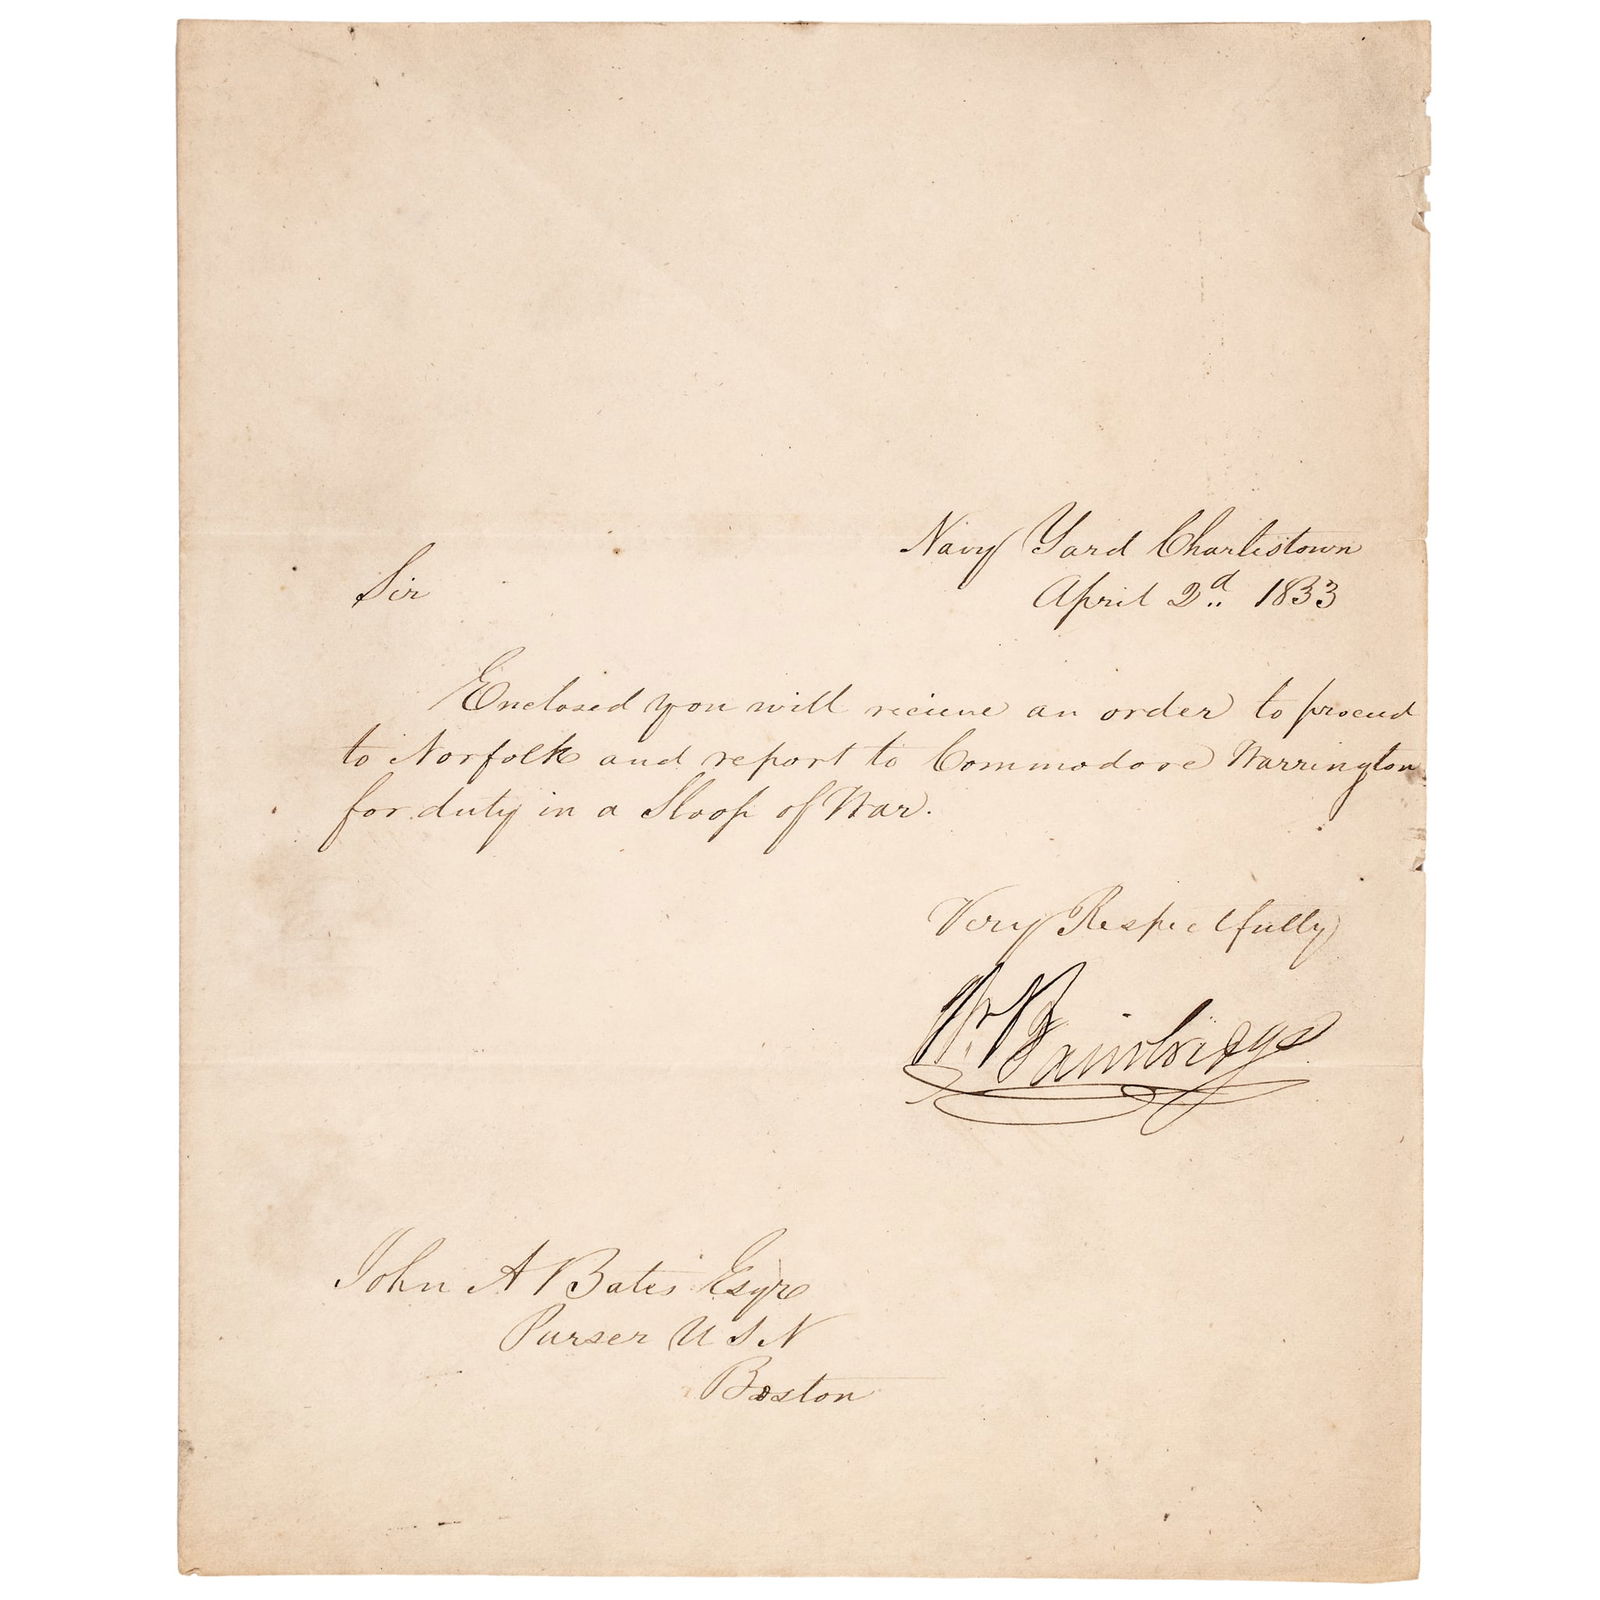 Navy Yard Charlestown
April 2d. 1833
Sir
Enclosed you will recieve an order to proceed
to Norfolk and report to Commodore Warrington
for duty in a Sloop of War.
Very Respectfully
Wm Bainbridge
John A Bates Esqre
Purser U S N
Boston